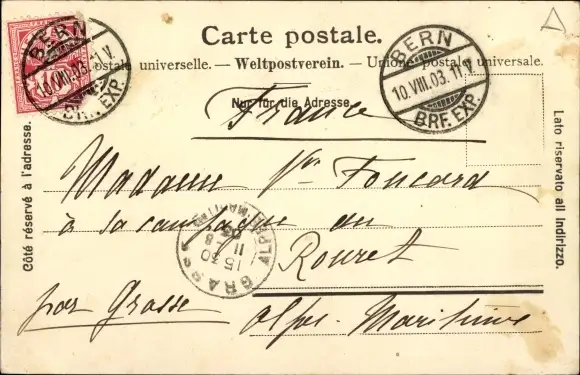 Carte postale.
Union postale universelle. — Weltpostverein. — Unione postale universale
Nur für die Adresse.
France
Madame Vve Foucard
à sa campagne du
Rouret
par Grasse
Alpes-Maritimes
Côté réservé à l'adresse.
Lato riservato all indirizzo.
BERN
10.VIII.03.11.V.
BRF. EXP.
BERN
10.VIII.03.11.V.
BRF. EXP.
GRASSE
ALPES-MARITIMES
15 30
11 -8
03